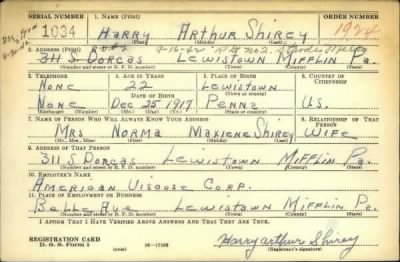 SERIAL NUMBER 1. NAME (Print) ORDER NUMBER
1034 Harry Arthur Shirey 1924
(First) (Middle) (Last)
2. ADDRESS (Print) 9-16-42
311 S Dorcas Lewistown Mifflin Pa.
(Number and street or R. F. D. number) (Town) (County) (State)
3. TELEPHONE 4. AGE IN YEARS 5. PLACE OF BIRTH 6. COUNTRY OF CITIZENSHIP
None 22 Lewistown
(Town or county)
DATE OF BIRTH
None Dec 25 1917 Penna U.S.
(Exchange) (Number) (Mo.) (Day) (Yr.) (State or country)
7. NAME OF PERSON WHO WILL ALWAYS KNOW YOUR ADDRESS 8. RELATIONSHIP OF THAT PERSON
Mrs Norma Maxiene Shirey Wife
(Mr., Mrs., Miss) (First) (Middle) (Last)
9. ADDRESS OF THAT PERSON
311 S Dorcas Lewistown Mifflin Pa.
(Number and street or R. F. D. number) (Town) (County) (State)
10. EMPLOYER'S NAME
American Viscose Corp.
11. PLACE OF EMPLOYMENT OR BUSINESS
Belle Ave Lewistown Mifflin Pa.
(Number and street or R. F. D. number) (Town) (County) (State)
I AFFIRM THAT I HAVE VERIFIED ABOVE ANSWERS AND THAT THEY ARE TRUE.
REGISTRATION CARD
D. S. S. Form 1 (over) 16—17105 Harry arthur Shirey
(Registrant's signature)